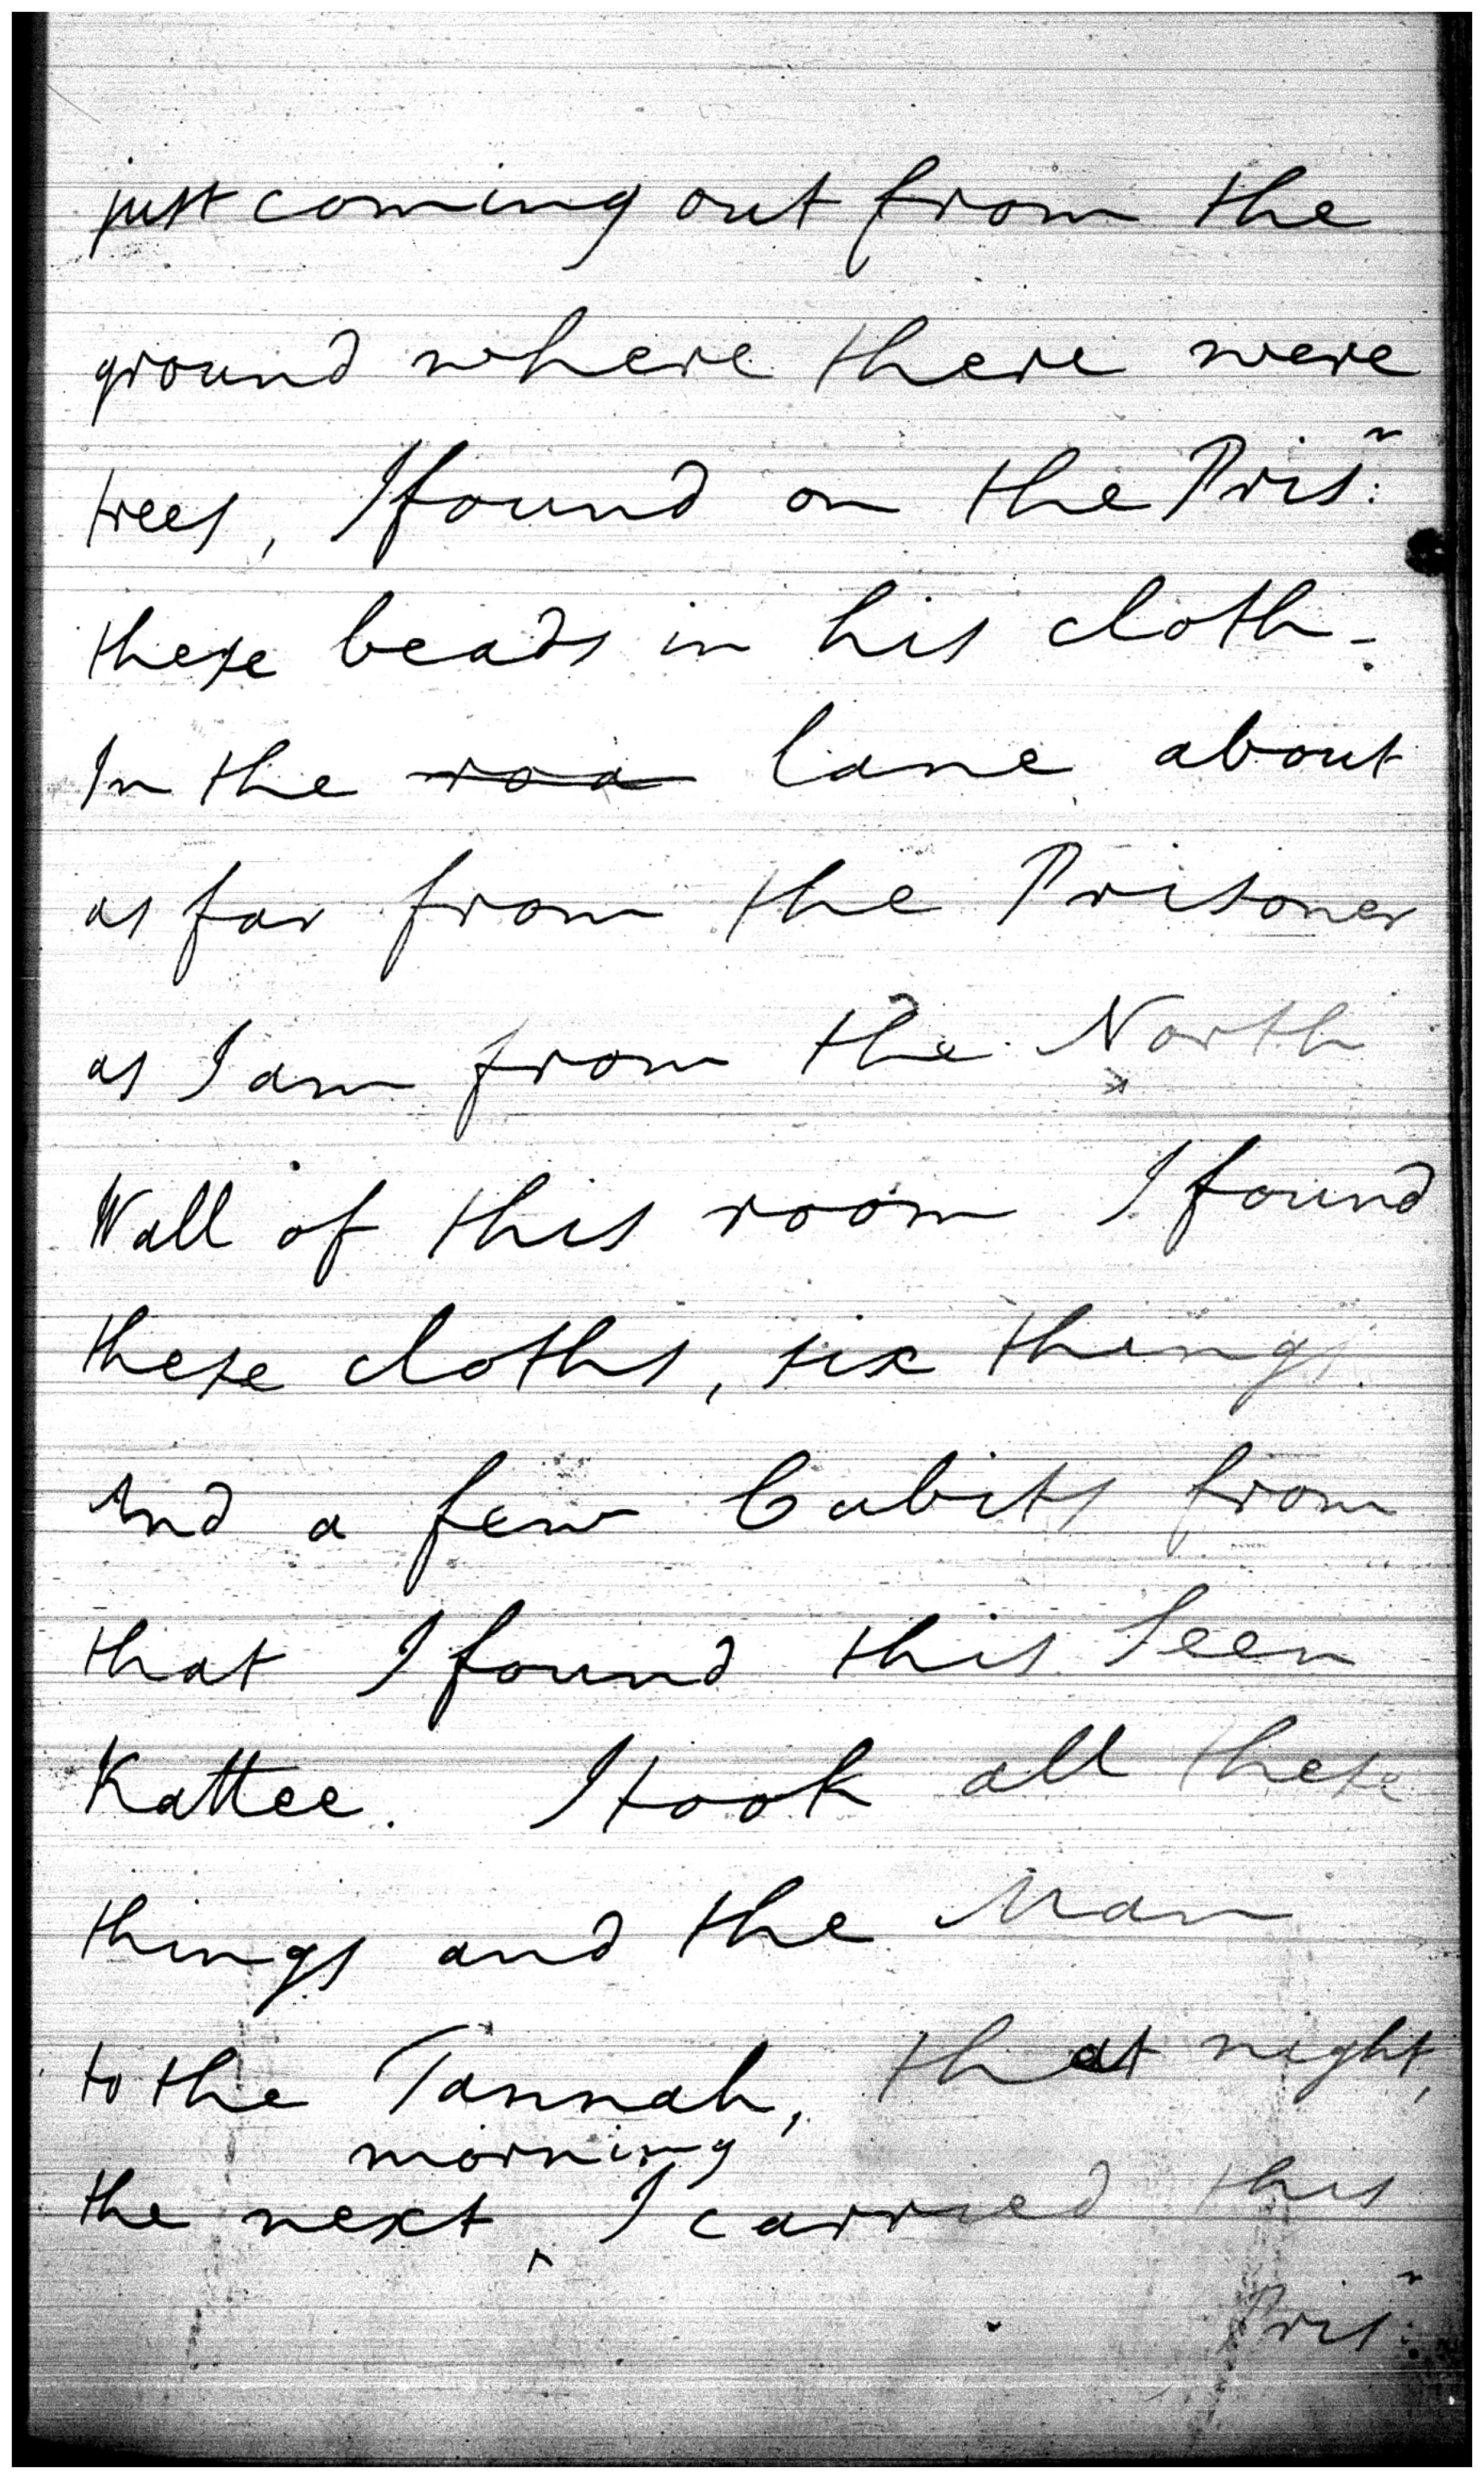 just coming out from the
ground where there were
trees, I found on the Pris.ⁿ
these beads in his cloth -.
In the roa lane about
as far from the Prisoner
as I am from the North
Wall of this room I found
these cloths, six things.
And a few Cubits from
that I found this Seen
Kattee. I took all these
things and the Man
to the Tannah, that night,
morning
the next ‸ I carried this
Pris.ⁿ